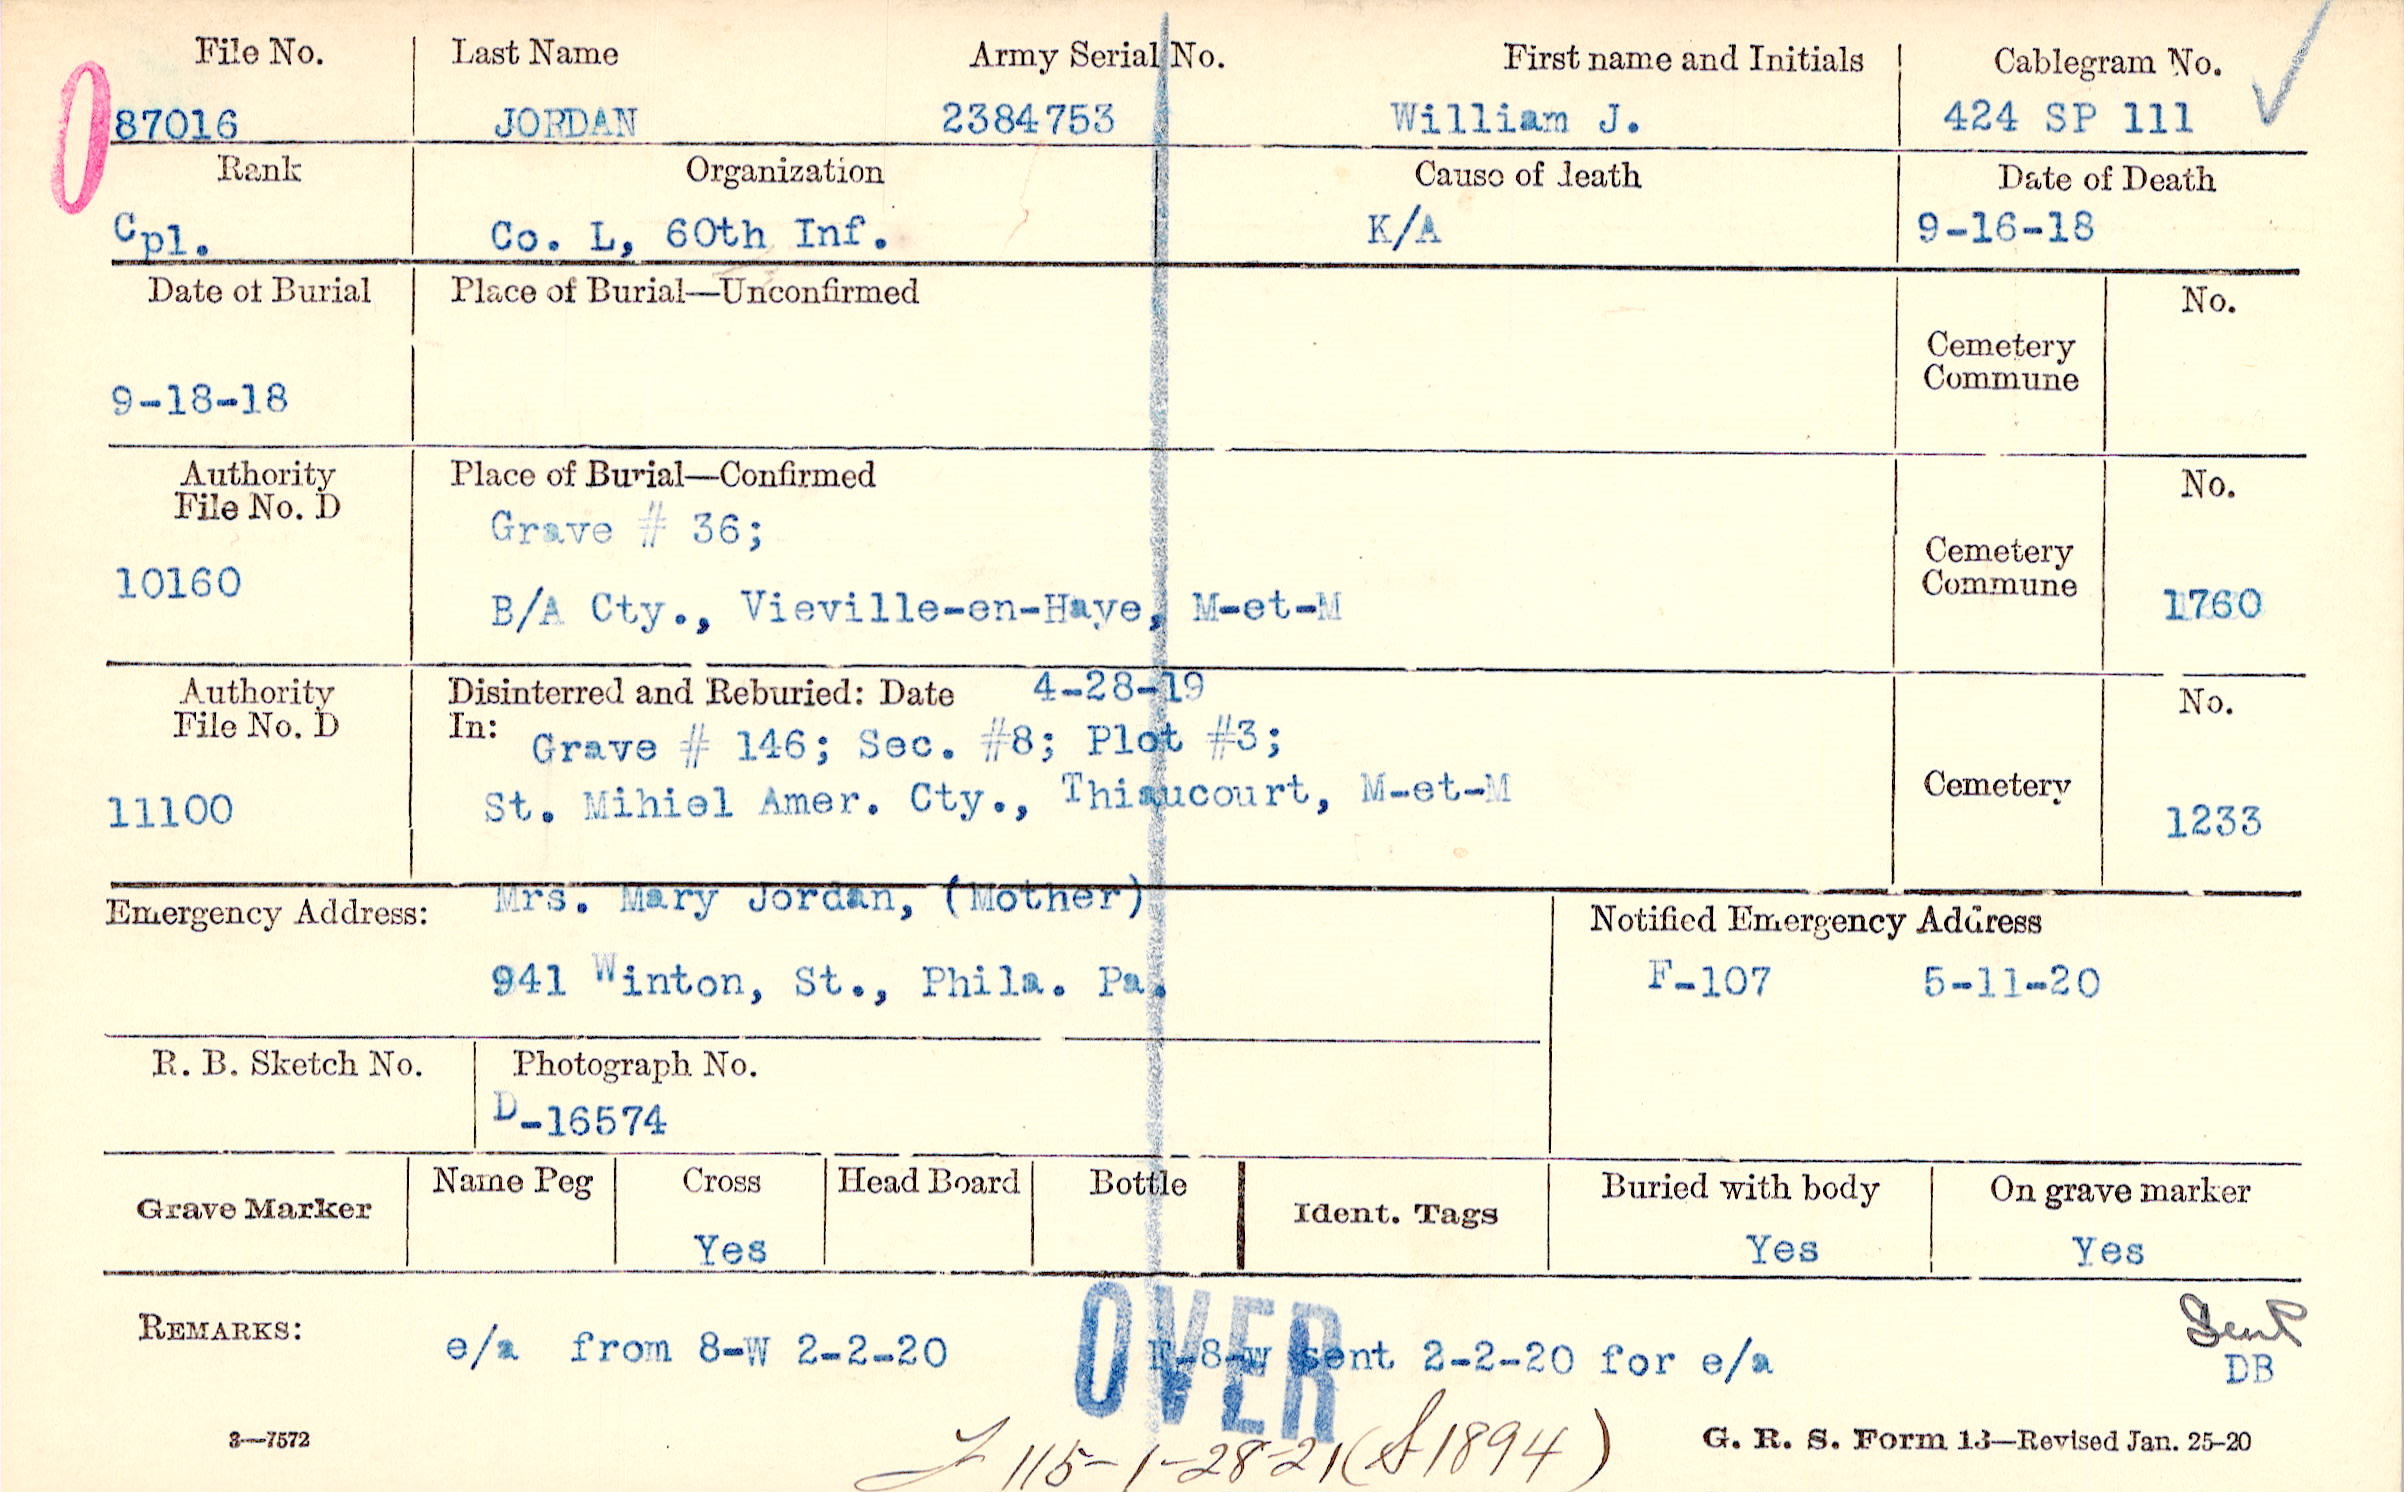 File No. Last Name Army Serial No. First name and Initials Cablegram No.
87016 JORDAN 2384753 William J. 424 SP 111
Rank Organization Cause of death Date of Death
Cpl. Co. L, 60th Inf. K/A 9-16-18
Date of Burial Place of Burial—Unconfirmed No.
Cemetery
Commune
9-18-18
Authority Place of Burial—Confirmed No.
File No. D
Grave # 36;
Cemetery
Commune
10160 B/A Cty., Vieville-en-Haye, M-et-M 1760
Authority Disinterred and Reburied: Date 4-28-19 No.
File No. D In: Grave # 146; Sec. #8; Plot #3;
Cemetery
11100 St. Mihiel Amer. Cty., Thiaucourt, M-et-M 1233
Emergency Address: Mrs. Mary Jordan, (Mother) Notified Emergency Address
941 Winton, St., Phila. Pa. F-107 5-11-20
R. B. Sketch No. Photograph No.
D-16574
Grave Marker Name Peg Cross Head Board Bottle Ident. Tags Buried with body On grave marker
Yes Yes Yes
OVER
Sent
REMARKS: e/a from 8-W 2-2-20 F-8-W sent 2-2-20 for e/a DB
115-1-28-21 (S1894)
3—7572 G. R. S. Form 13—Revised Jan. 25-20